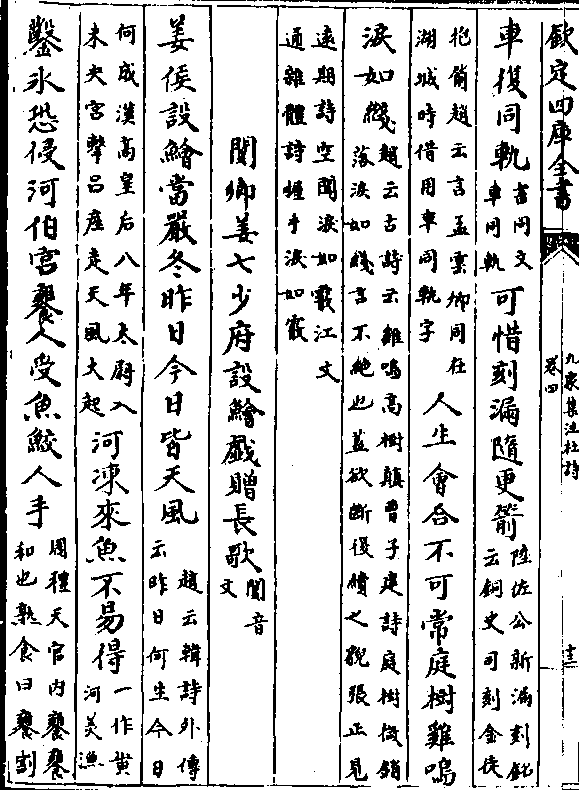 欽定四庫全書
九家集注杜詩
卷四
十三
車復同軌
書同文
車同軌
可惜刻漏隨更箭
陸佐公新漏刻銘
云銅史司刻金徒
抱箭趙云言孟雲卿同在
湖城時借用車同軌字
人生會合不可常庭樹雞鳴
淚如綫
趙云古詩云雞鳴高樹顛曹子建詩庭樹微銷
落淚如綫言不絶也蓋欲斷復續之貌張正見
遠期詩空聞淚如霰江文
通雜體詩握手淚如霰
閿鄉姜七少府設鱠戲贈長歌
閿音
文
姜侯設鱠當嚴冬昨日今日皆天風
趙云韓詩外傳
云昨日何生今日
何成漢高皇后八年太尉入
未央宮擊吕産走天風大起
河凍來魚不易得
一作黄
河美漁
鑿氷恐侵河伯宮饔人受魚鮫人手
周禮天官内饔饔
和也熟食曰饔割